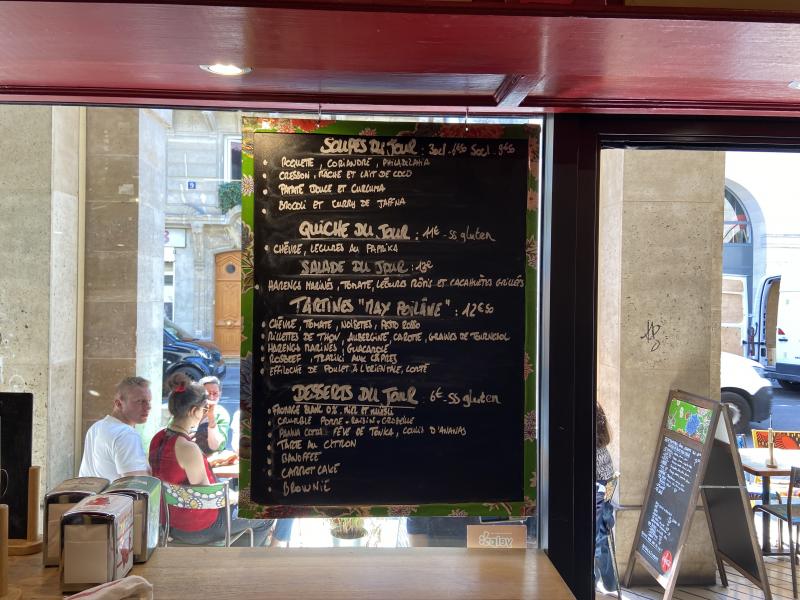 SOUPES DU JOUR : 30cl - 6€50 50cl - 9€50
ROQUETTE, CORIANDRE, PHILADELPHIA
CRESSON, MÂCHE ET LAIT DE COCO
PATATE DOUCE ET CURCUMA
BROCOLI ET CURRY DE JAFFNA
QUICHE DU JOUR : 11€ - ss gluten
CHÈVRE, LEGUMES AU PAPRIKA
SALADE DU JOUR : 13€
HARENGS MARINÉS, TOMATE, LÉGUMES RÔTIS ET CACAHUÈTES GRILLÉES
TARTINES "MAX POILÂNE" : 12€50
CHÈVRE, TOMATE, NOISETTES, PESTO ROSSO
RILLETTES DE THON, AUBERGINE, CAROTTE, GRAINES DE TOURNESOL
HARENGS MARINES, GUACAMOLE
ROSBEEF, TZATZIKI AUX CÂPRES
EFFILOCHÉ DE POULET À L'ORIENTALE, COMTÉ
DESSERTS DU JOUR : 6€ - ss gluten
FROMAGE BLANC 0%, MIEL ET MUESLI
CRUMBLE POMME - RAISIN - GROSEILLE
PANNA COTTA : FÈVE DE TONKA, COULIS D'ANANAS
TARTE AU CITRON
BANOFFEE
CARROT CAKE
BROWNIE
9